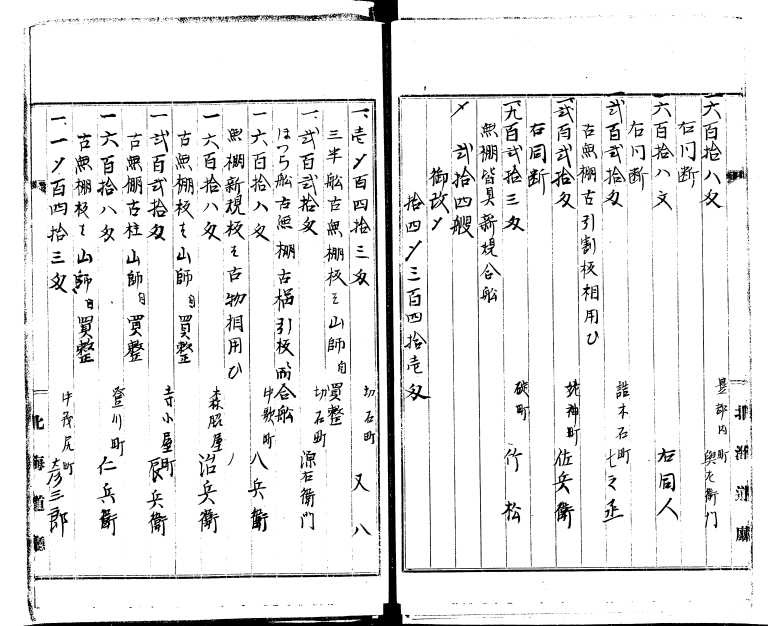 一六百拾八匁
是部内町 與左衛門
右同断
一六百拾八文
右同人
右同断
一弐百弐拾匁
詰木石町 七之丞
古魚棚古引割板相用ひ
一弐百弐拾匁
姥神町 佐兵衛
右同断
一九百弐拾三匁
碇町 竹松
魚棚皆具新規合船
〆 弐拾四艘
御改〆
拾四〆三百四拾壱匁
北海道廳
一、壱〆百四拾三匁
切石町 又八
三半船古魚棚板を山師自買整
一、弐百弐拾匁
切石町 源右衛門
ほつち船古魚棚古 引板 合船
一六百拾八匁
中歌町 八兵衛
魚棚新規板を古物相用ひ
一六百拾八匁
森 屋 治兵衛
古魚棚板を山師自買整
一弐百弐拾匁
寺小屋町 辰兵衛
古魚棚古柱山師自買整
一六百拾八匁
登川町 仁兵衛
古魚棚板を山師自買整
一、一〆百四拾三匁
中茂尻町 彦三郎
北海道廳